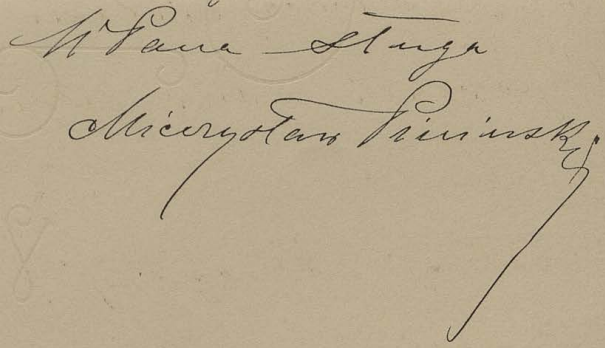 W Pana sługa
Mieczysław Piniński